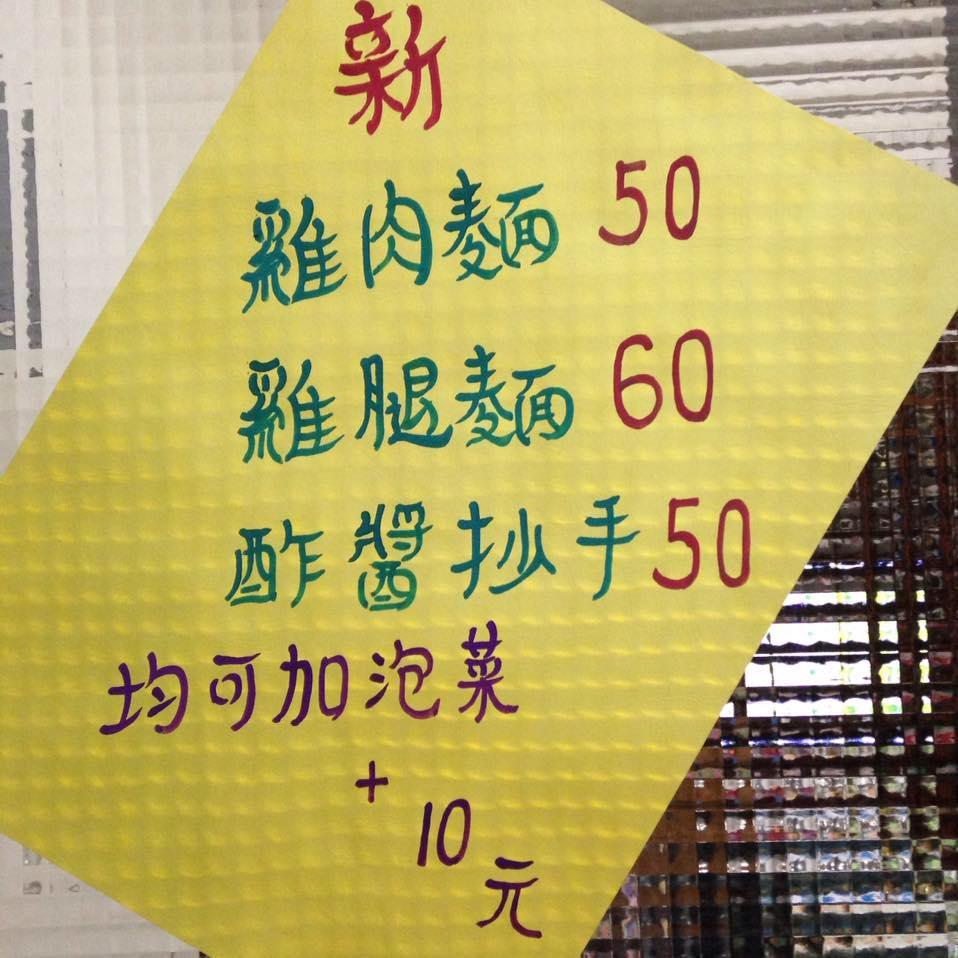 新
雞肉麵 50
雞腿麵 60
酢醬抄手 50
均可加泡菜
+ 10 元